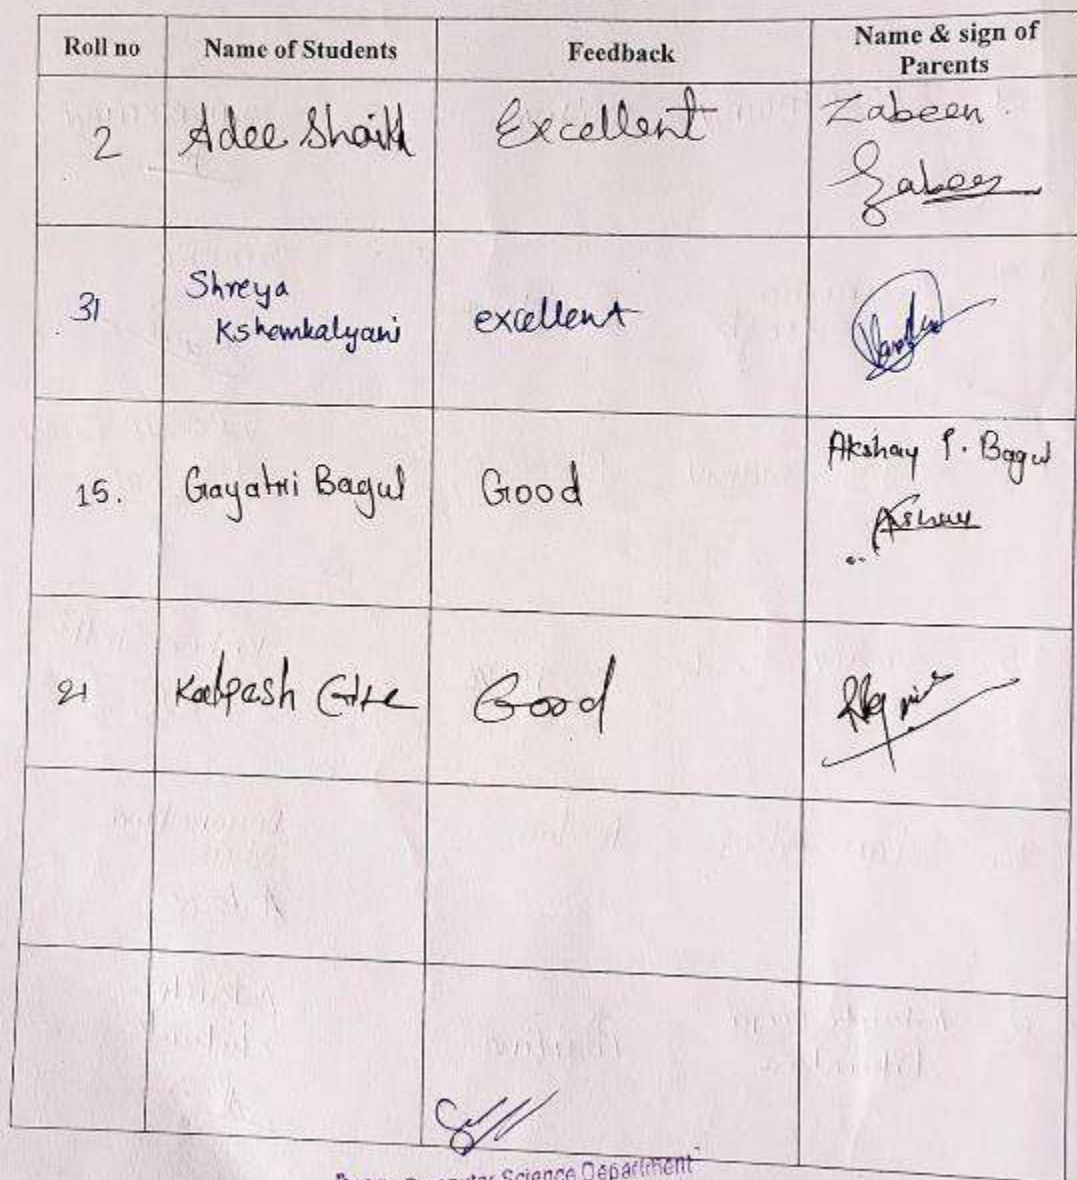 Roll no Name of Students Feedback Name & sign of
Parents
2 Adee Shaikh Excellent Zabeen.
Zabeen
31 Shreya
Kshemkalyani excellent
15. Gayatri Bagul Good Akshay P. Bagul
Akshay
21 Kalpesh Gite Good
Computer Science Department